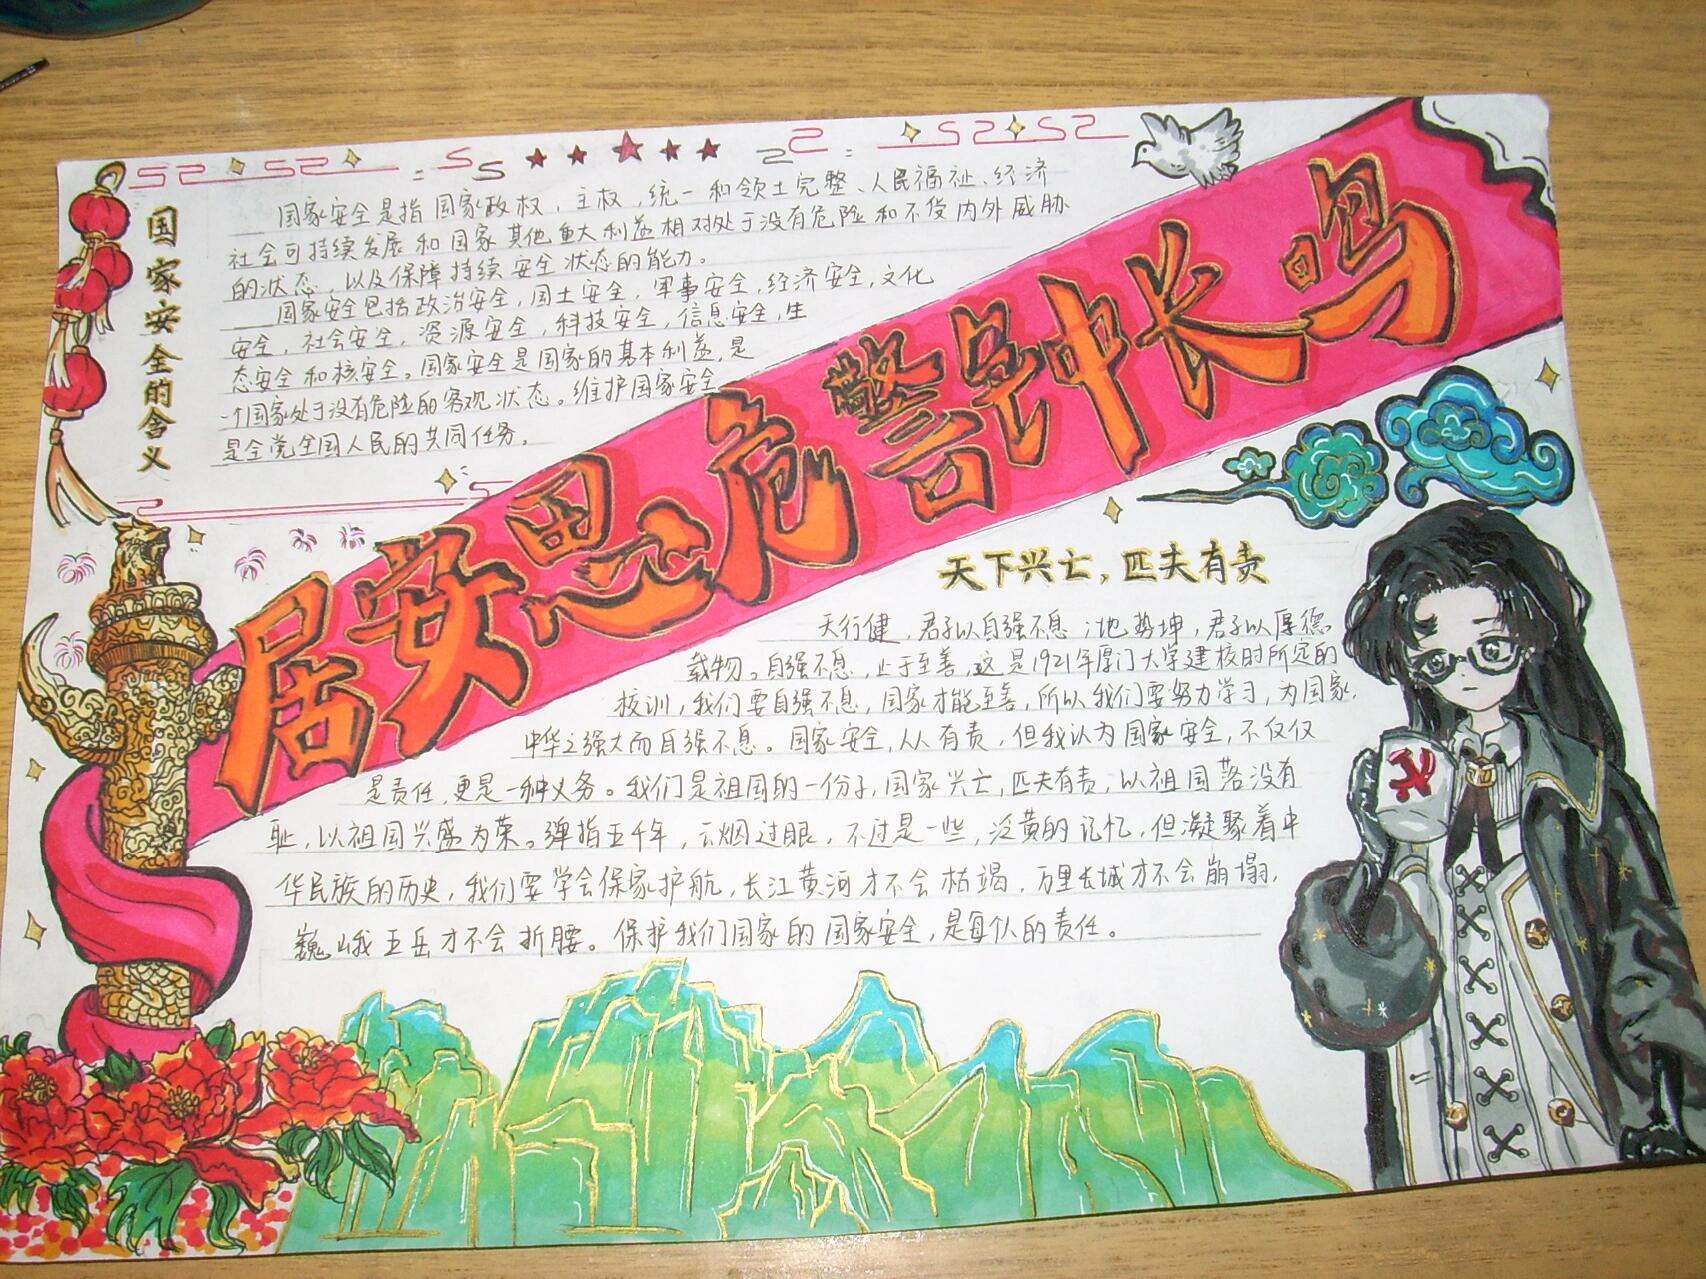 国家安全的含义
国家安全是指国家政权、主权，统一和领土完整、人民福祉、经济
社会可持续发展和国家其他重大利益相对处于没有危险和不受内外威胁
的状态，以及保障持续安全状态的能力。
国家安全包括政治安全，国土安全，军事安全，经济安全，文化
安全，社会安全，资源安全，科技安全，信息安全，生
态安全和核安全。国家安全是国家的基本利益，是
一个国家处于没有危险的客观状态。维护国家安全
是全党全国人民的共同任务。
居安思危警钟长鸣
天下兴亡，匹夫有责
天行健，君子以自强不息；地势坤，君子以厚德
载物。自强不息，止于至善，这是1921年厦门大学建校时所定的
校训，我们要自强不息，国家才能至善，所以我们要努力学习，为国家，
中华之强大而自强不息。国家安全，人人有责，但我认为国家安全，不仅仅
是责任，更是一种义务。我们是祖国的一份子，国家兴亡，匹夫有责，以祖国落没有
耻，以祖国兴盛为荣。弹指五千年，云烟过眼，不过是一些，泛黄的记忆，但凝聚着中
华民族的历史，我们要学会保家护航，长江黄河才不会枯竭，万里长城才不会崩塌，
巍峨五岳才不会折腰。保护我们国家的国家安全，是每个人的责任。